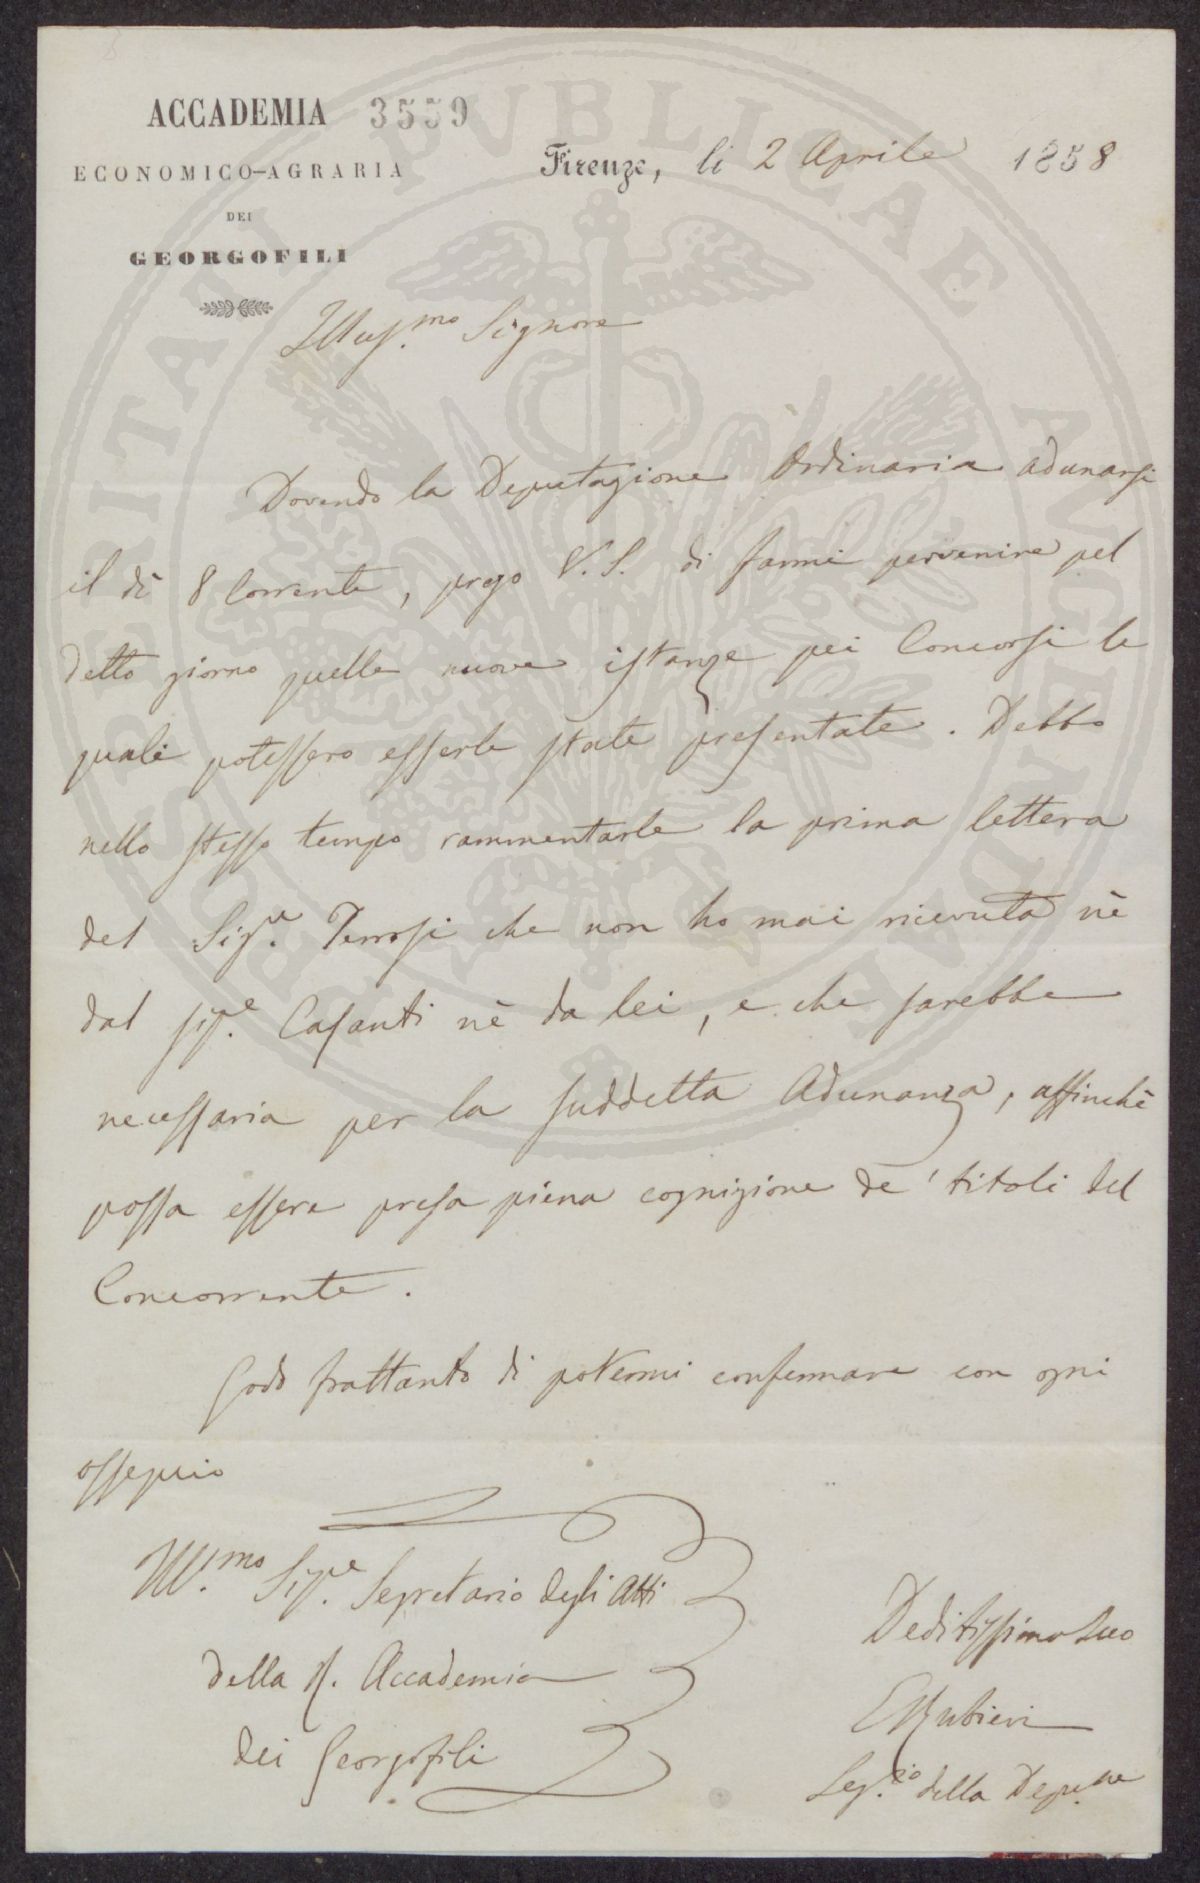 ACCADEMIA 3559
ECONOMICO-AGRARIA
DEI
GEORGOFILI
Firenze, li 2 Aprile 1858
Illus.mo Signore
Dovendo la Deputazione Ordinaria adunarsi
il dì 8 Corrente, prego V. S. di farmi pervenire pel
detto giorno quelle nuove istanze pei Concorsi le
quali potessero esserle state presentate. Debbo
nello stesso tempo rammentarle la prima lettera
del Sig.r Terrosi che non ho mai ricevuta nè
dal sig.e Casanti nè da lei, e che sarebbe
necessaria per la suddetta Adunanza, affinchè
possa essere presa piena cognizione de' titoli del
Concorrente.
Godo frattanto di potermi confermare con ogni
ossequio
Ill.mo Sig.e Segretario degli Atti
della R. Accademia
dei Georgofili
Deditissimo Suo
E Rubieri
Seg.rio della Depu.ne
PROSPERITATI PVBLICAE AVGENDAE